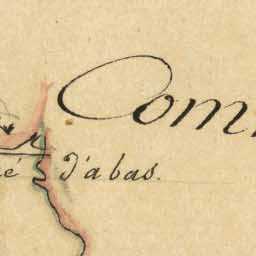 Com
é d'abas.